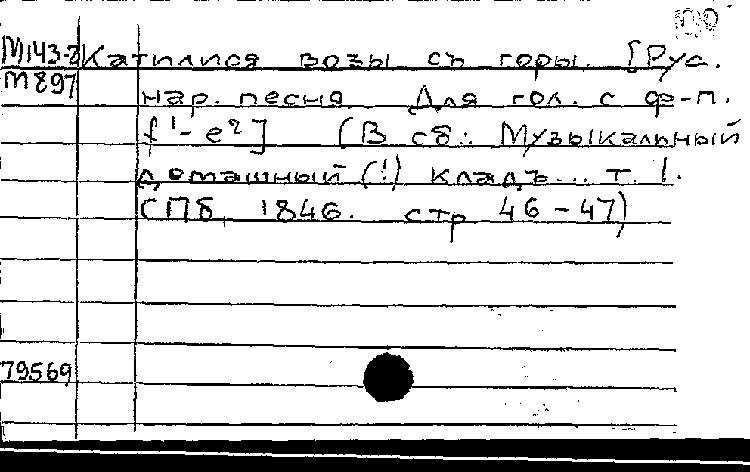 М143-2 Катилися возы съ горы. [Рус.
М897 нар. песня. Для гол. с ф-п.
f¹-e²] (В сб.: Музыкальный
домашный (!) кладъ... т. 1.
СПб, 1846. стр 46-47)
79569